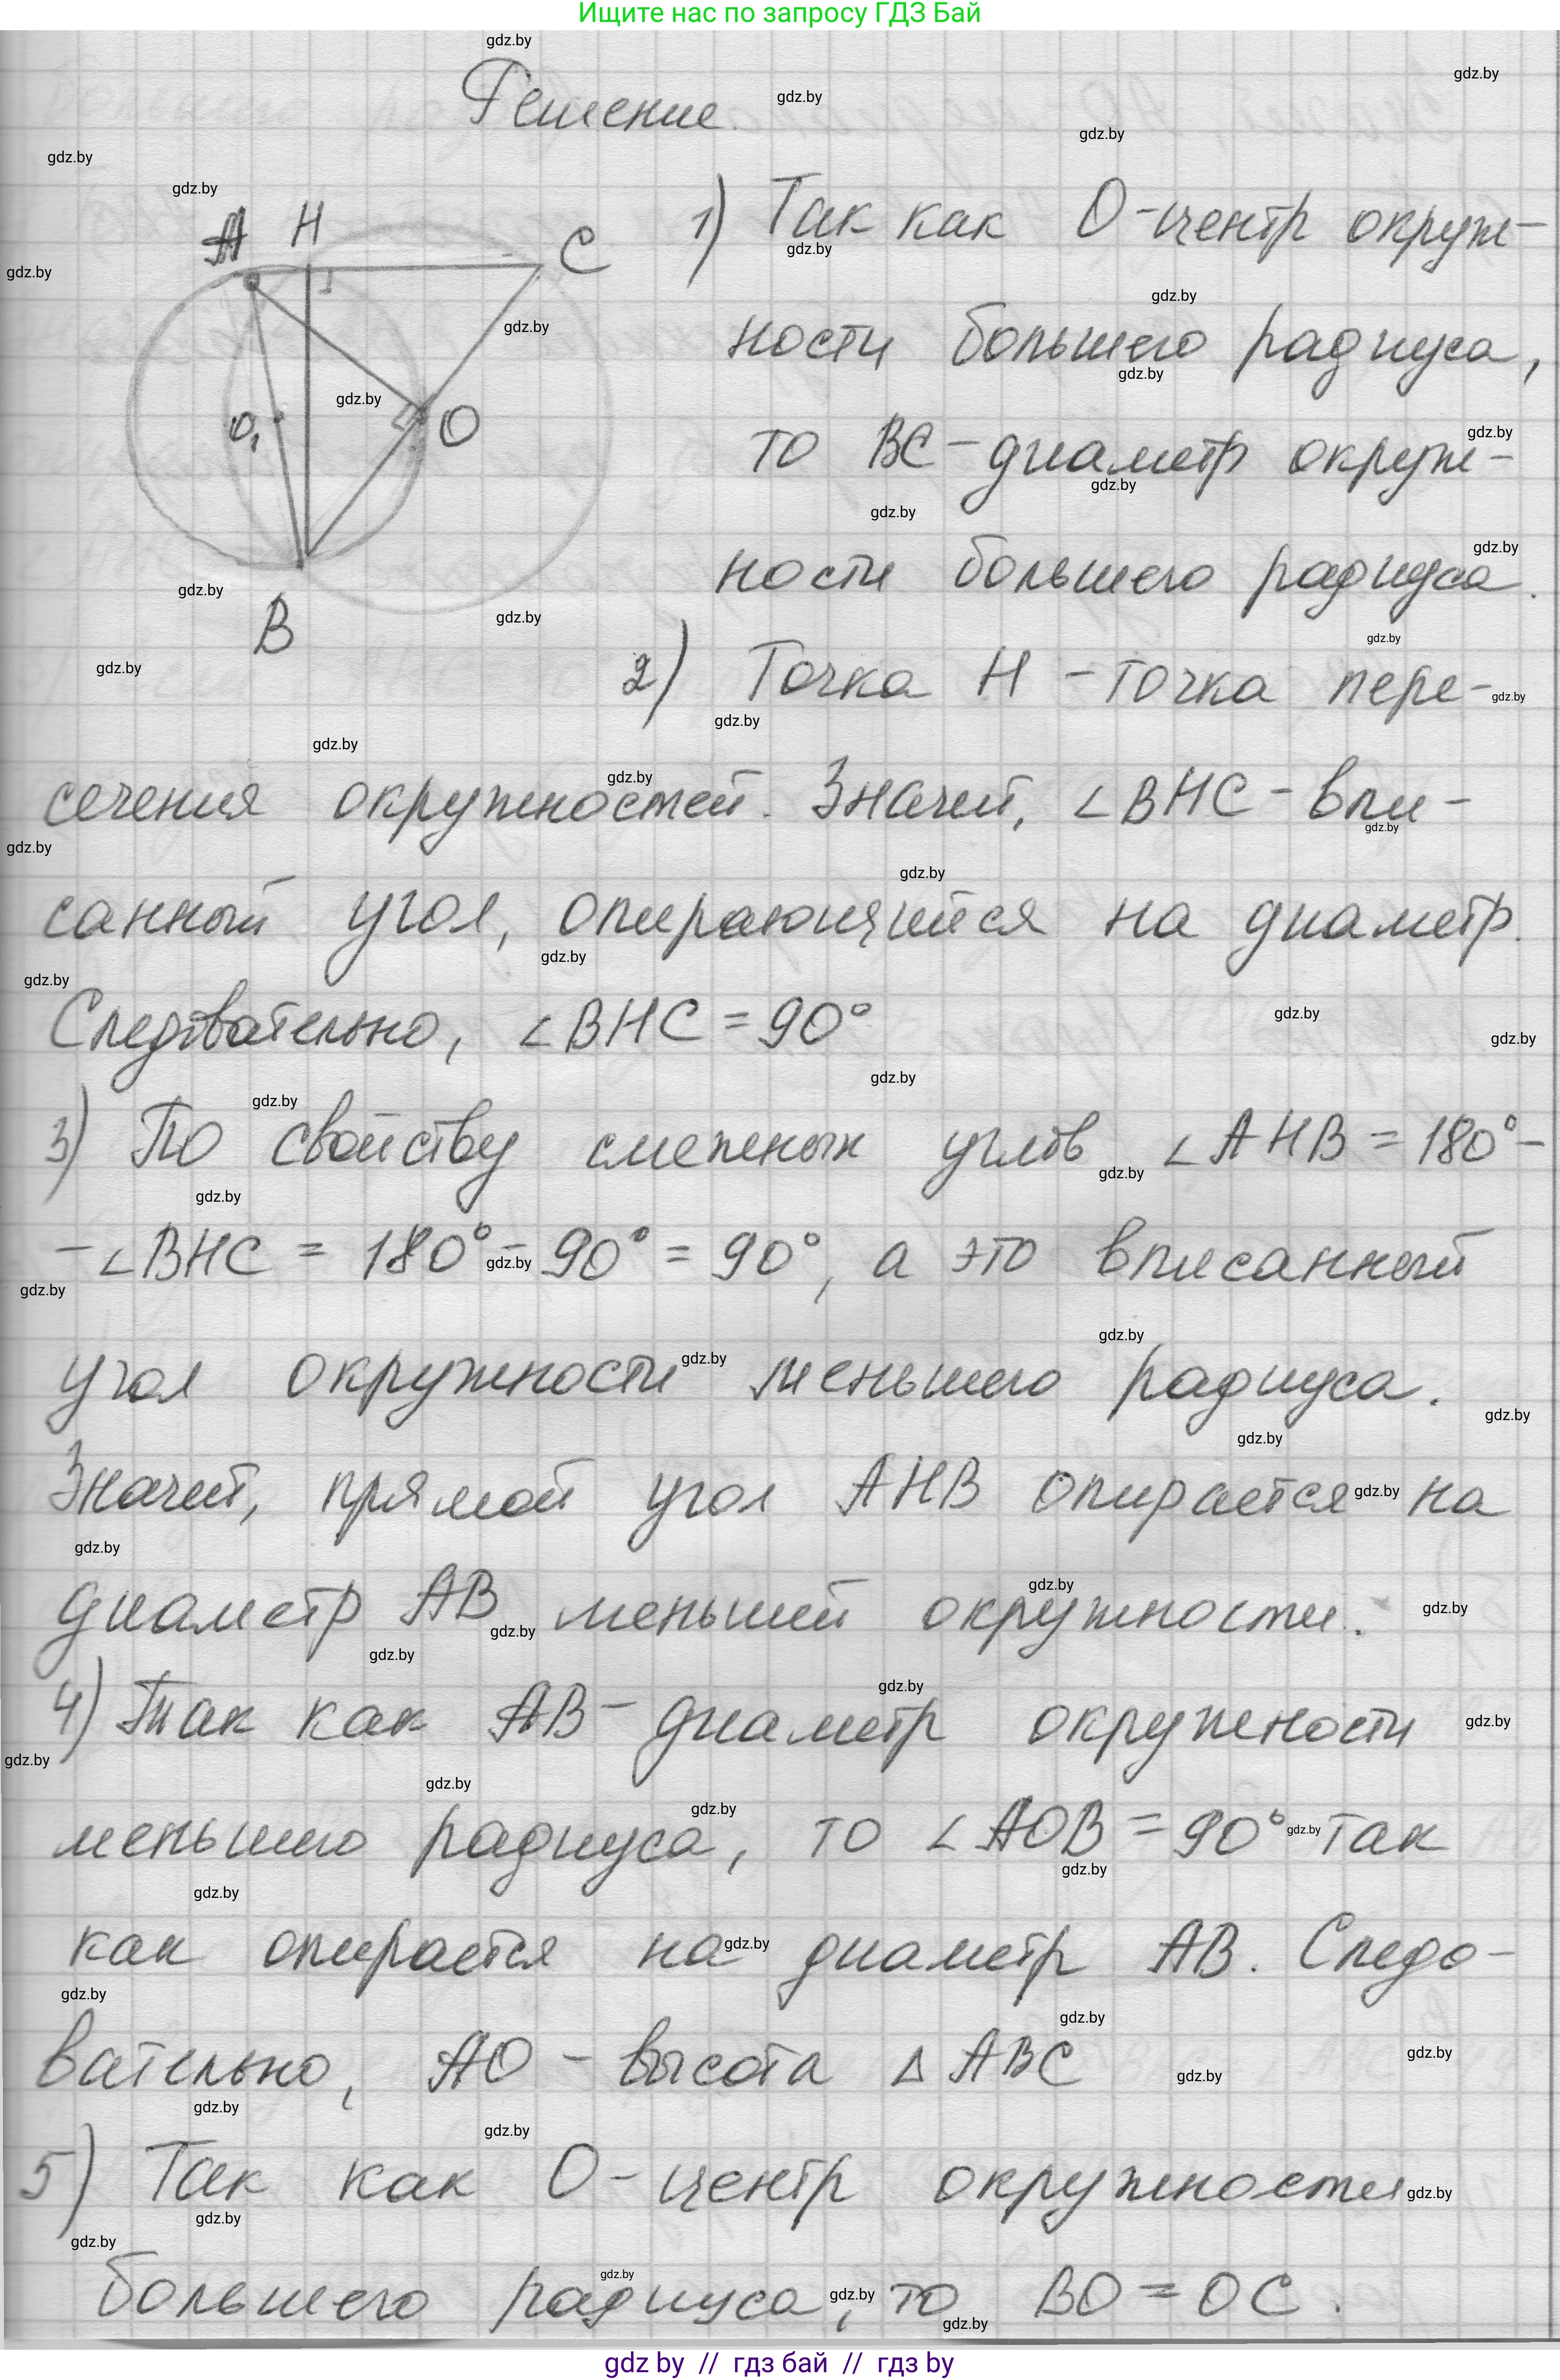 Ищите нас по запросу ГДЗ Бай
Решение.
A H C
O₁ O
B
1) Так как O - центр окруж-
ности большего радиуса,
то BC - диаметр окруж-
ности большего радиуса.
2) Точка H - точка пере-
сечения окружностей. Значит, ∠BHC - впи-
санный угол, опирающийся на диаметр.
Следовательно, ∠BHC = 90°
3) По свойству смежных углов ∠AHB = 180° -
- ∠BHC = 180° - 90° = 90°, а это вписанный
угол окружности меньшего радиуса.
Значит, прямой угол AHB опирается на
диаметр AB меньшей окружности.
4) Так как AB - диаметр окружности
меньшего радиуса, то ∠AOB = 90° так
как опирается на диаметр AB. Следо-
вательно, AO - высота △ABC
5) Так как O - центр окружности
большего радиуса, то BO = OC.
gdz by // гдз бай // гдз by